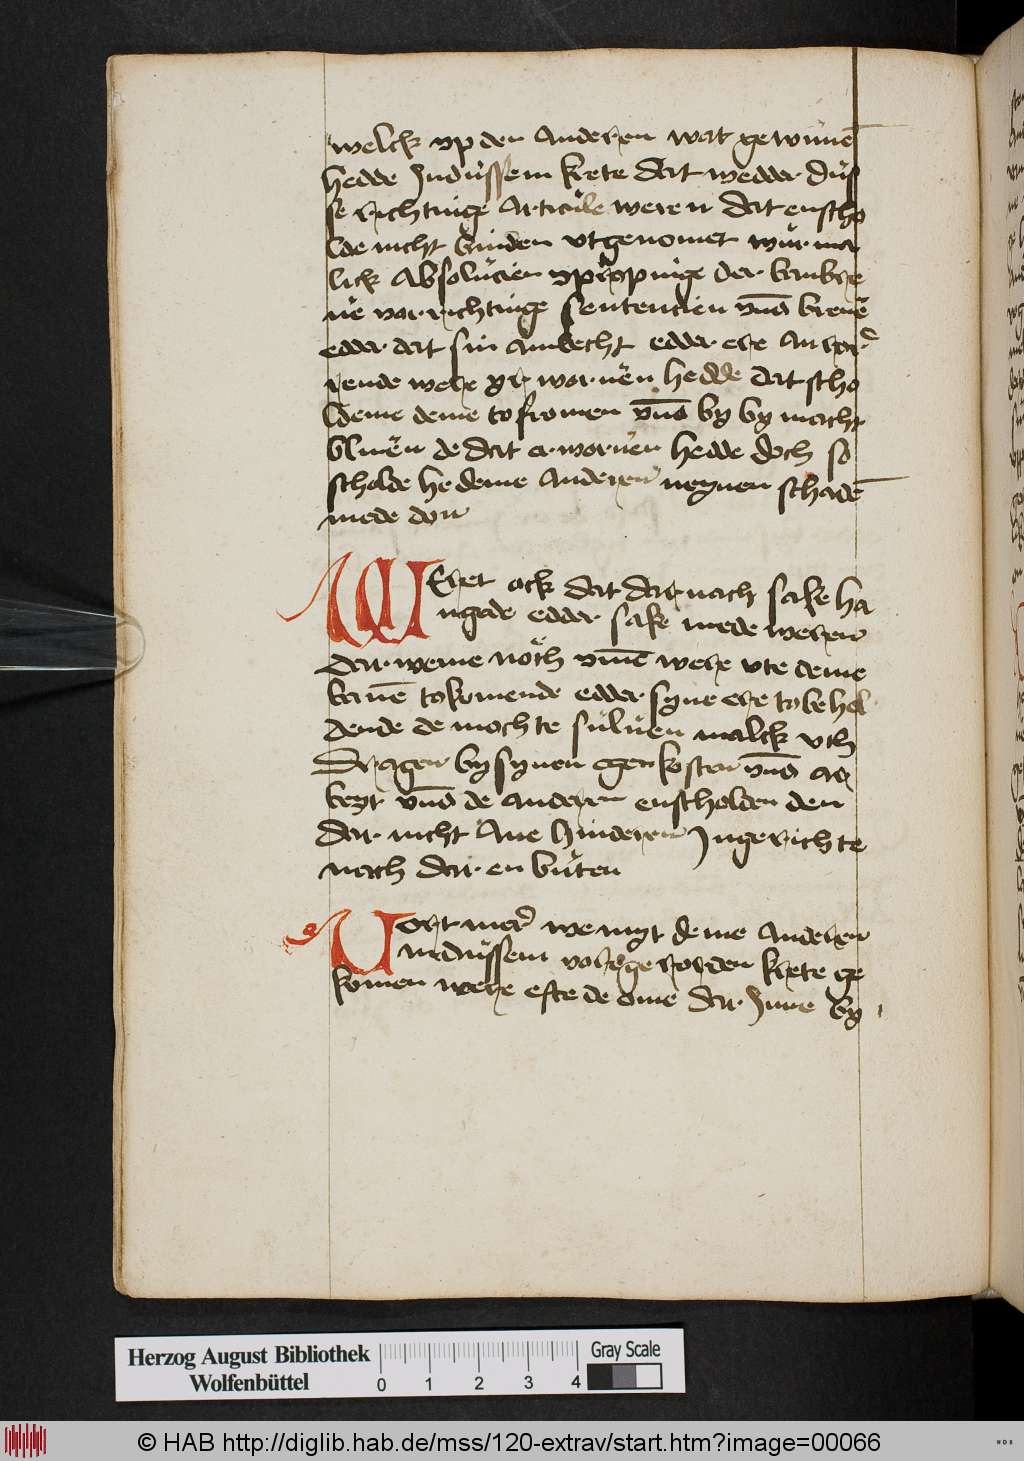 welck vp den anderen wat gewu̅ne̅
hedde Jndüssem krete dat wedder düs
se richtinge Articule weren dat enscho
lde nicht binden vtgenomen
lick Absolucien der banbre
ue vorrichtinge sentencien vn̅d breue̅
edder dat sin ambecht edder ere
rende were wornen hedde dat scho
ldeme deme to fromen vn̅d by by macht
bliuen de dat erworuen hedde doch so
scholde he deme anderen neynen schade̅
mede don
WEret ock dat dar nach sake ha
ngede edder sake mede weren
dar weme noth vm̅e were vte deme
bane̅ tokomende edder syne ere to behol
dende de mochte suluen malck vth
dragen by synen egen kosten vn̅d ar
beyt vn̅d de anderen enscholden den
dar nicht Ane hinderen Jngerichte
noch dar en büten
Vort mer we myt deme anderen
indüssem vorgerorden krete ge
komen were efte de ome dar Jnne by
Herzog August Bibliothek
Wolfenbüttel
0 1 2 3 4
Gray Scale
© HAB http://diglib.hab.de/mss/120-extrav/start.htm?image=00066